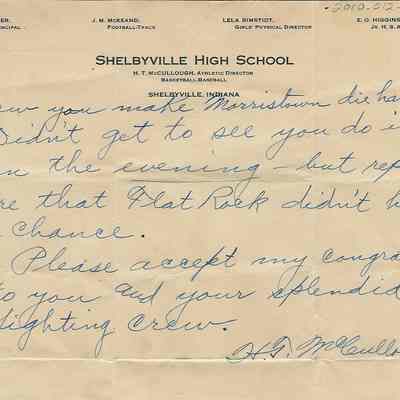 2010-012-
ER. J. M. McKEAND, LELA DIMSTIDT, E. O. HIGGINS
NCIPAL FOOTBALL-TRACK GIRLS' PHYSICAL DIRECTOR JR. H. S. A
SHELBYVILLE HIGH SCHOOL
H. T. McCULLOUGH, ATHLETIC DIRECTOR
BASKETBALL-BASEBALL
SHELBYVILLE, INDIANA
ew you make Morristown die ha
Didn't get to see you do i
n the evening - but rep
re that Flat Rock didn't h
chance.
Please accept my congra
to you and your splendid
fighting crew.
H.T. McCullo